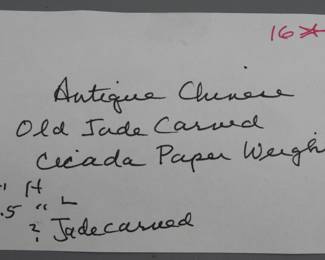 16*
Antique Chinese
Old Jade Carved
Cicada Paper Weigh
" H
.5 " L
? Jadecarved